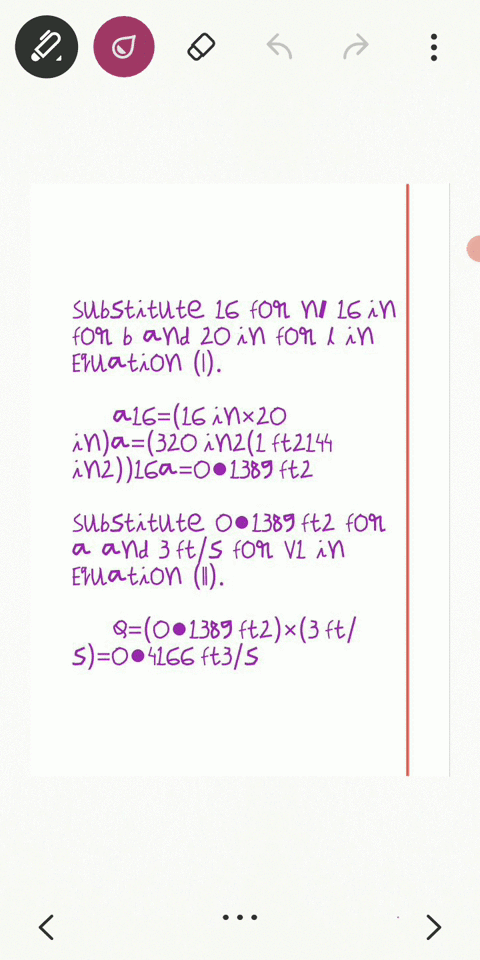 Substitute 16 for n, 16 in
for b and 20 in for l in
Equation (I).
a16=(16 in×20
in)a=(320 in2(1 ft2144
in2))16a=0•1389 ft2
Substitute 0•1389 ft2 for
a and 3 ft/s for V1 in
Equation (II).
Q=(0•1389 ft2)×(3 ft/
s)=0•4166 ft3/s